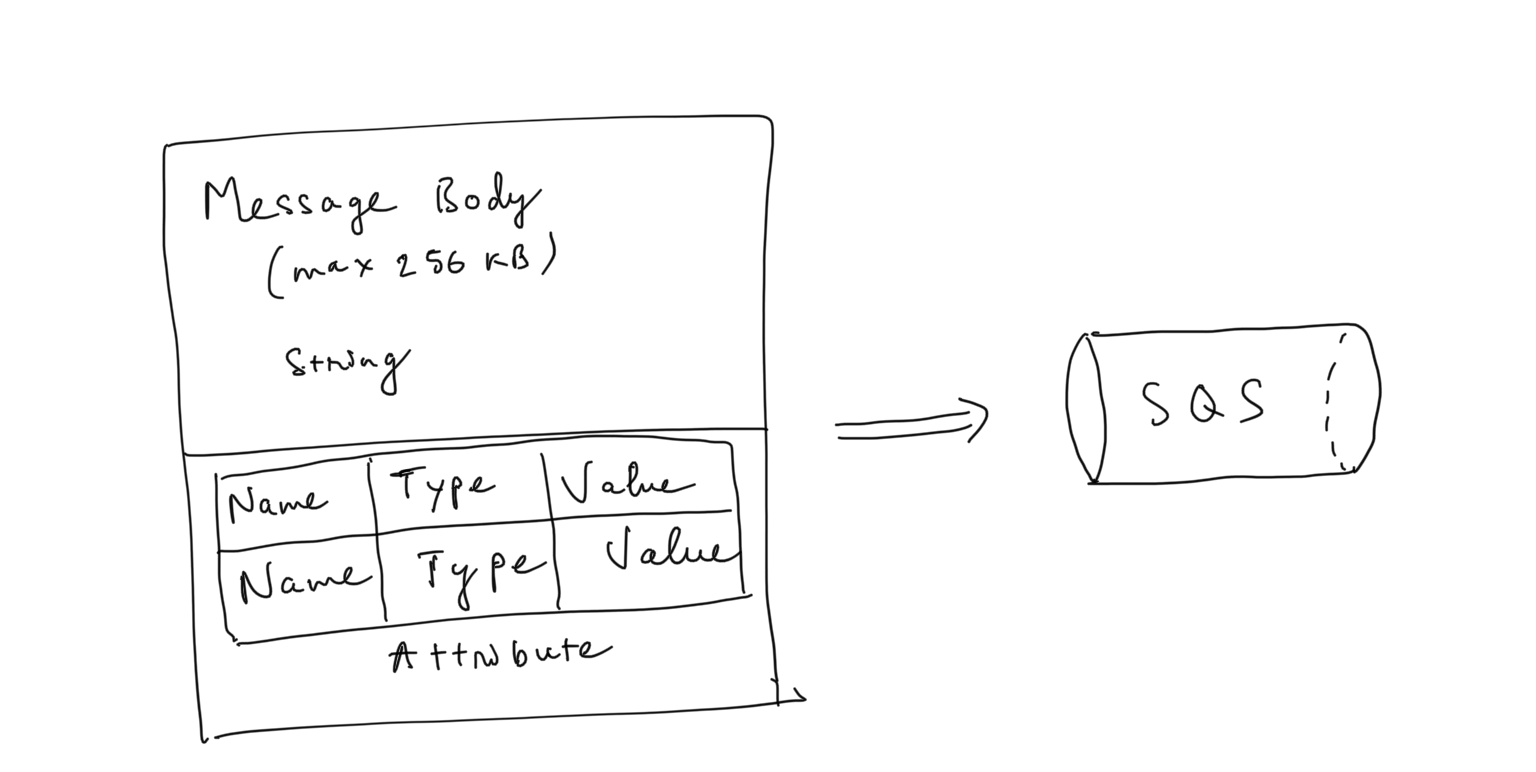 Message Body
(max 256 KB)
String
Name Type Value
Name Type Value
Attribute
SQS